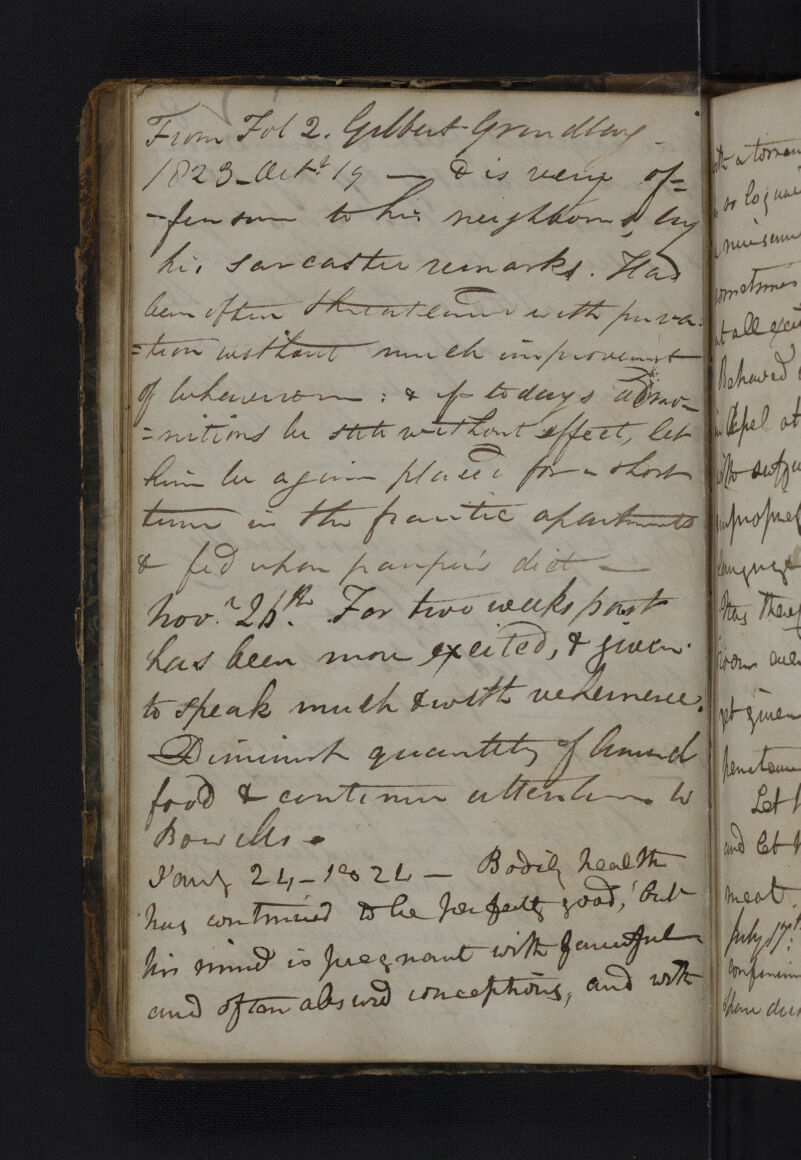 From Fol 2. Gilbert
1823 - Octr 19 — & is very of=
-fensive to his neighbours, by
his sarcastic remarks. Has
been often threatened with priva=
=tion without much improvement
of behaviour : & if todays admo=
=nitions be without effect, let
him be again placed for a short
time in the frantic apartments
& fed upon pauper's diet —
Novr 26th. For two weeks past
has been more excited, & given
to speak much & with vehemence.
Diminish quantity of animal
food & continue attention to
Bowels.
Jany 24 - 1824 — Bodily health
has continued to be perfectly good, but
his mind is pregnant with fanciful
and often absurd conceptions, and with
or
sometimes
at all
Behaved
at
language
has
room
yet given
Let
and let
meat.
July 17th